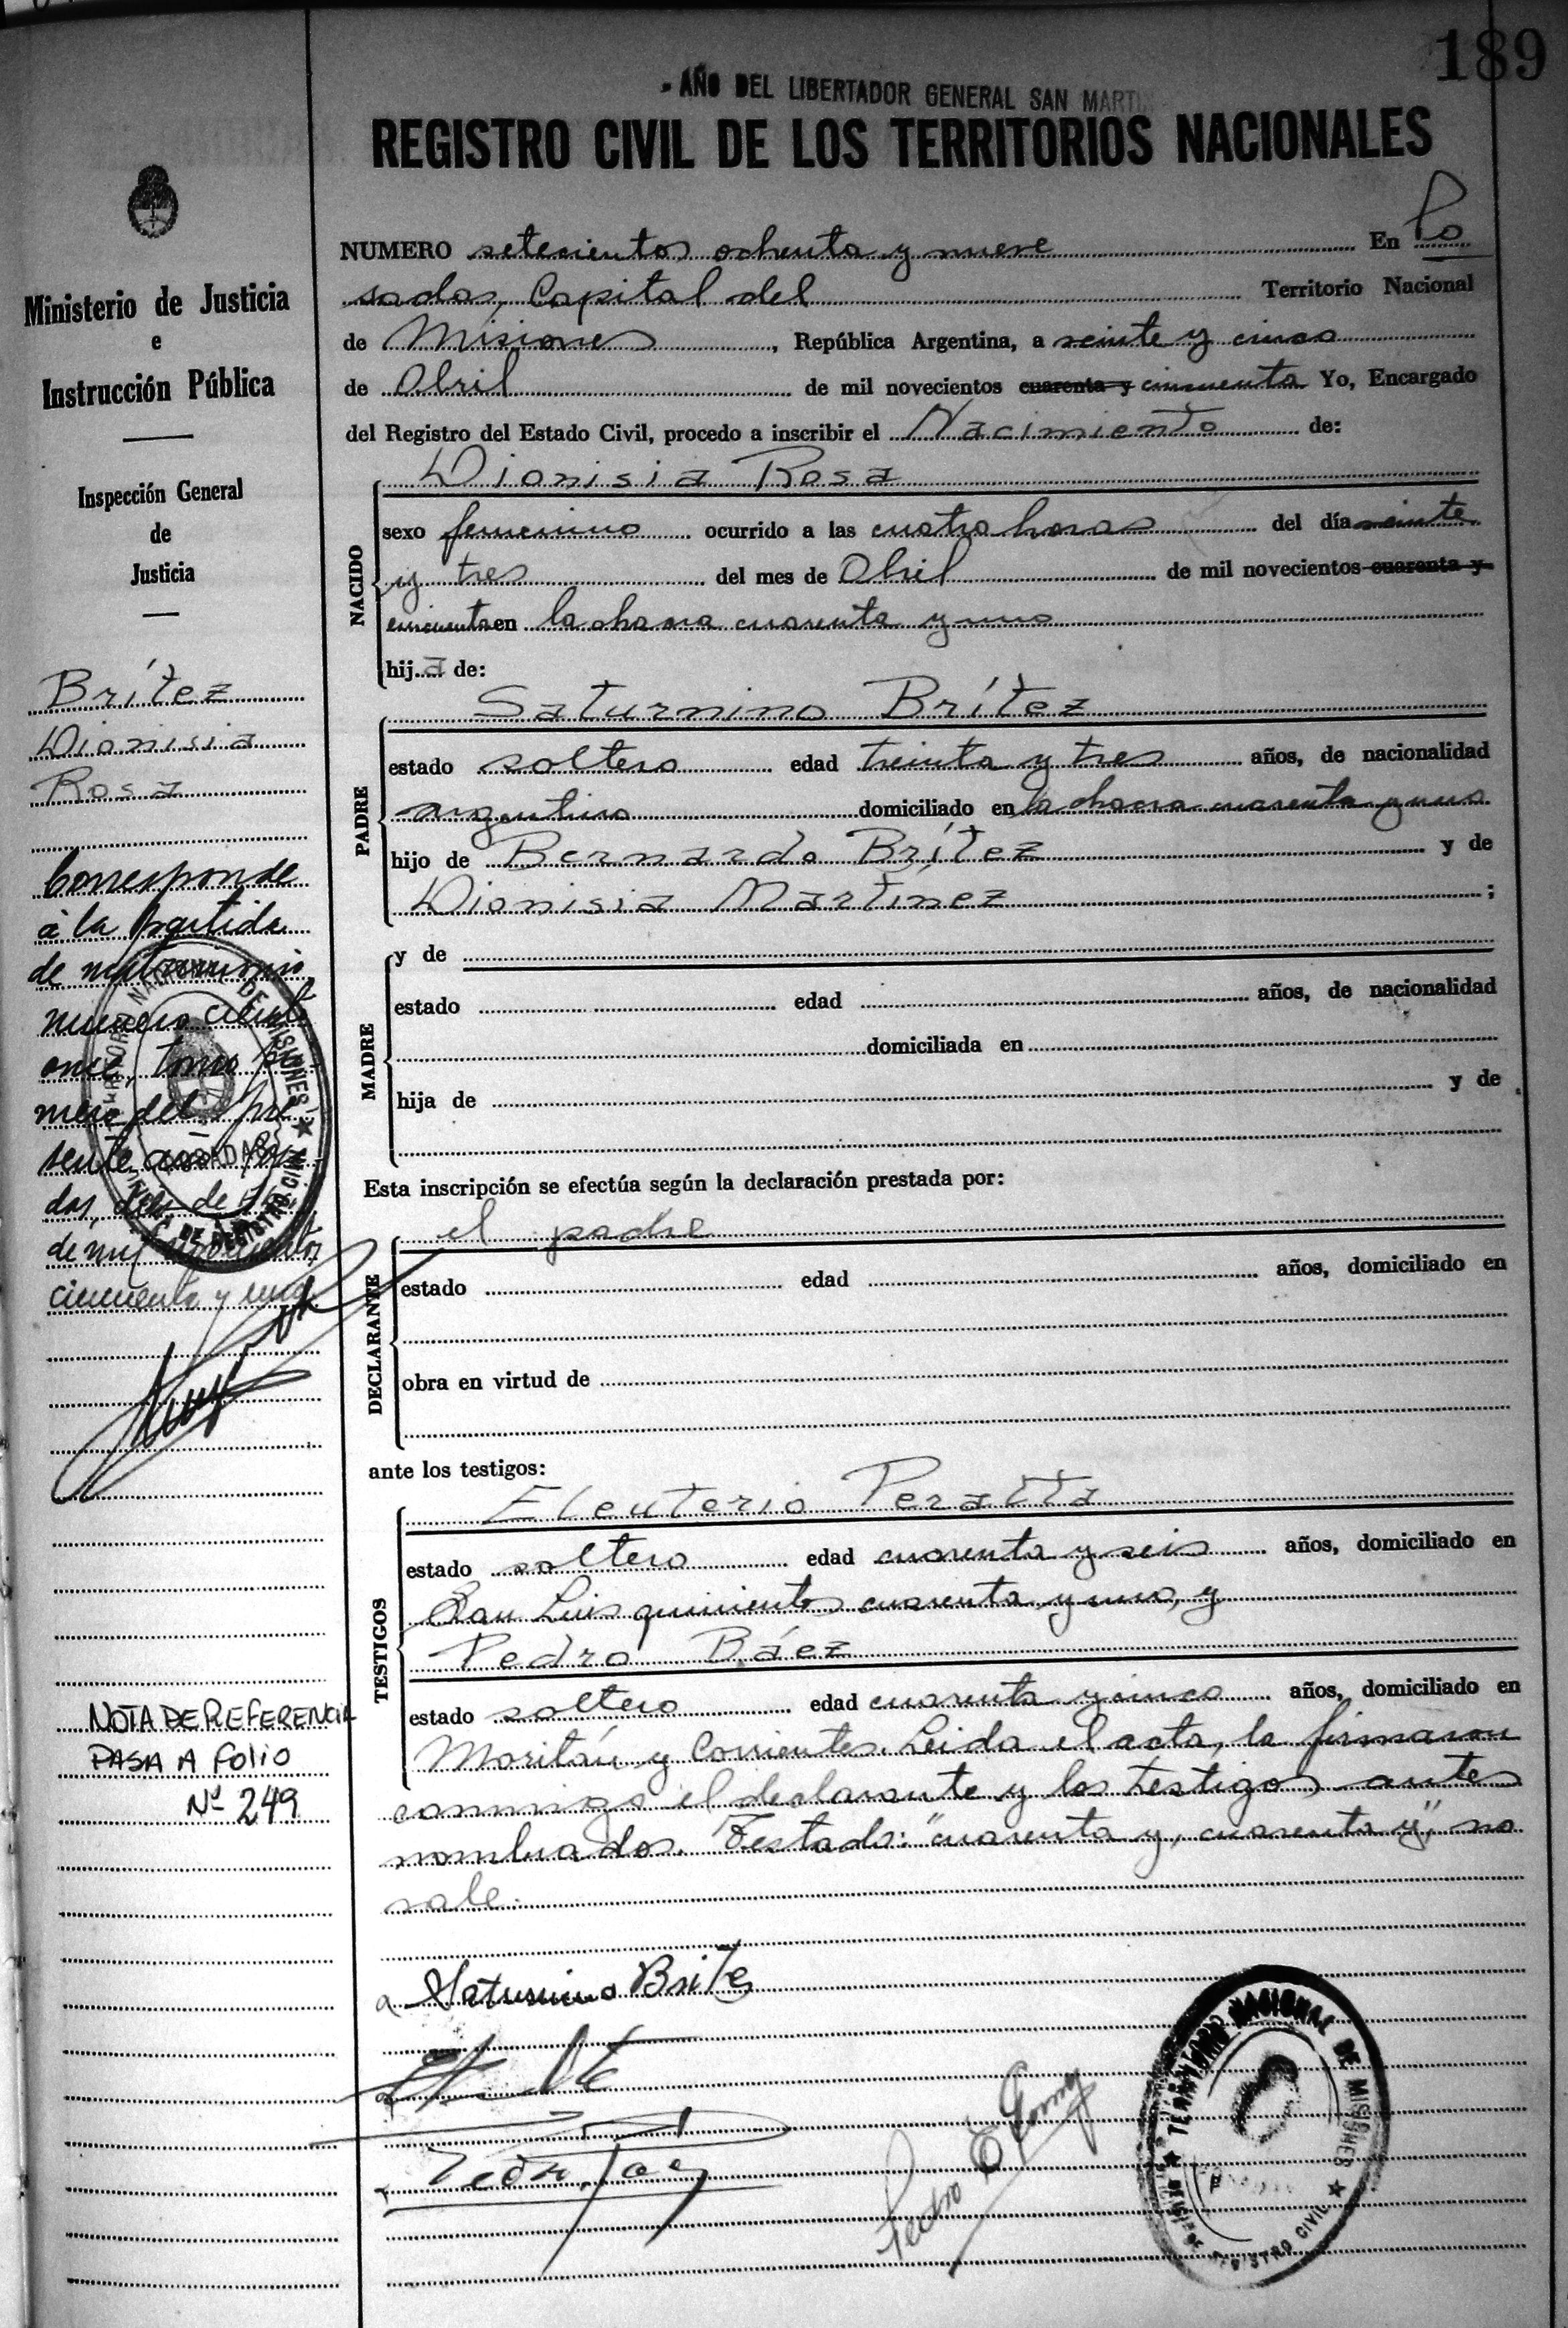 189
- AÑO DEL LIBERTADOR GENERAL SAN MARTIN
REGISTRO CIVIL DE LOS TERRITORIOS NACIONALES
Ministerio de Justicia
e
Instrucción Pública
Inspección General
de
Justicia
Brítez
Dionisia
Rosa
Corresponde
a la partida
de matrimonio
número ciento
once, tomo pri
mero del pre
sente
dos, de
de mil novecientos
cincuenta y uno
NOTA DE REFERENCIA
PASA A FOLIO
Nº 249
NUMERO setecientos ochenta y nueve En Po
sadas, Capital del Territorio Nacional
de Misiones, República Argentina, a veinte y cinco
de Abril de mil novecientos cuarenta y cincuenta Yo, Encargado
del Registro del Estado Civil, procedo a inscribir el Nacimiento de:
Dionisia Rosa
NACIDO
sexo femenino ocurrido a las cuatro horas del día veinte
y tres del mes de Abril de mil novecientos cuarenta y
cincuenta en la chacra cuarenta y uno
hija de:
Saturnino Brítez
PADRE
estado soltero edad treinta y tres años, de nacionalidad
argentino domiciliado en la chacra cuarenta y uno
hijo de Bernardo Brítez y de
Dionisia Martínez ;
MADRE
y de
estado edad años, de nacionalidad
domiciliada en
hija de y de
Esta inscripción se efectúa según la declaración prestada por:
el padre
DECLARANTE
estado edad años, domiciliado en
obra en virtud de
ante los testigos:
Eleuterio Peralta
TESTIGOS
estado soltero edad cuarenta y seis años, domiciliado en
San Luis quinientos cuarenta y uno, y
Pedro Báez
estado soltero edad cuarenta y cinco años, domiciliado en
Moritán y Corrientes. Leida el acta, la firmaron
conmigo el declarante y los testigos antes
nombrados. Testado: "cuarenta y, cuarenta y", no
vale.
Saturnino Brite
TERRITORIO NACIONAL DE MISIONES
REGISTRO CIVIL